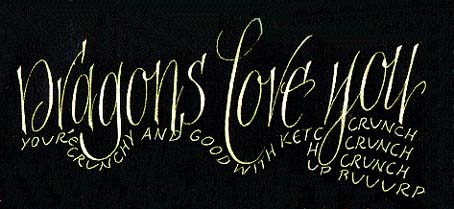 Dragons love you
YOU'RE CRUNCHY AND GOOD WITH KETCHUP
CRUNCH
CRUNCH
CRUNCH
BUUURP